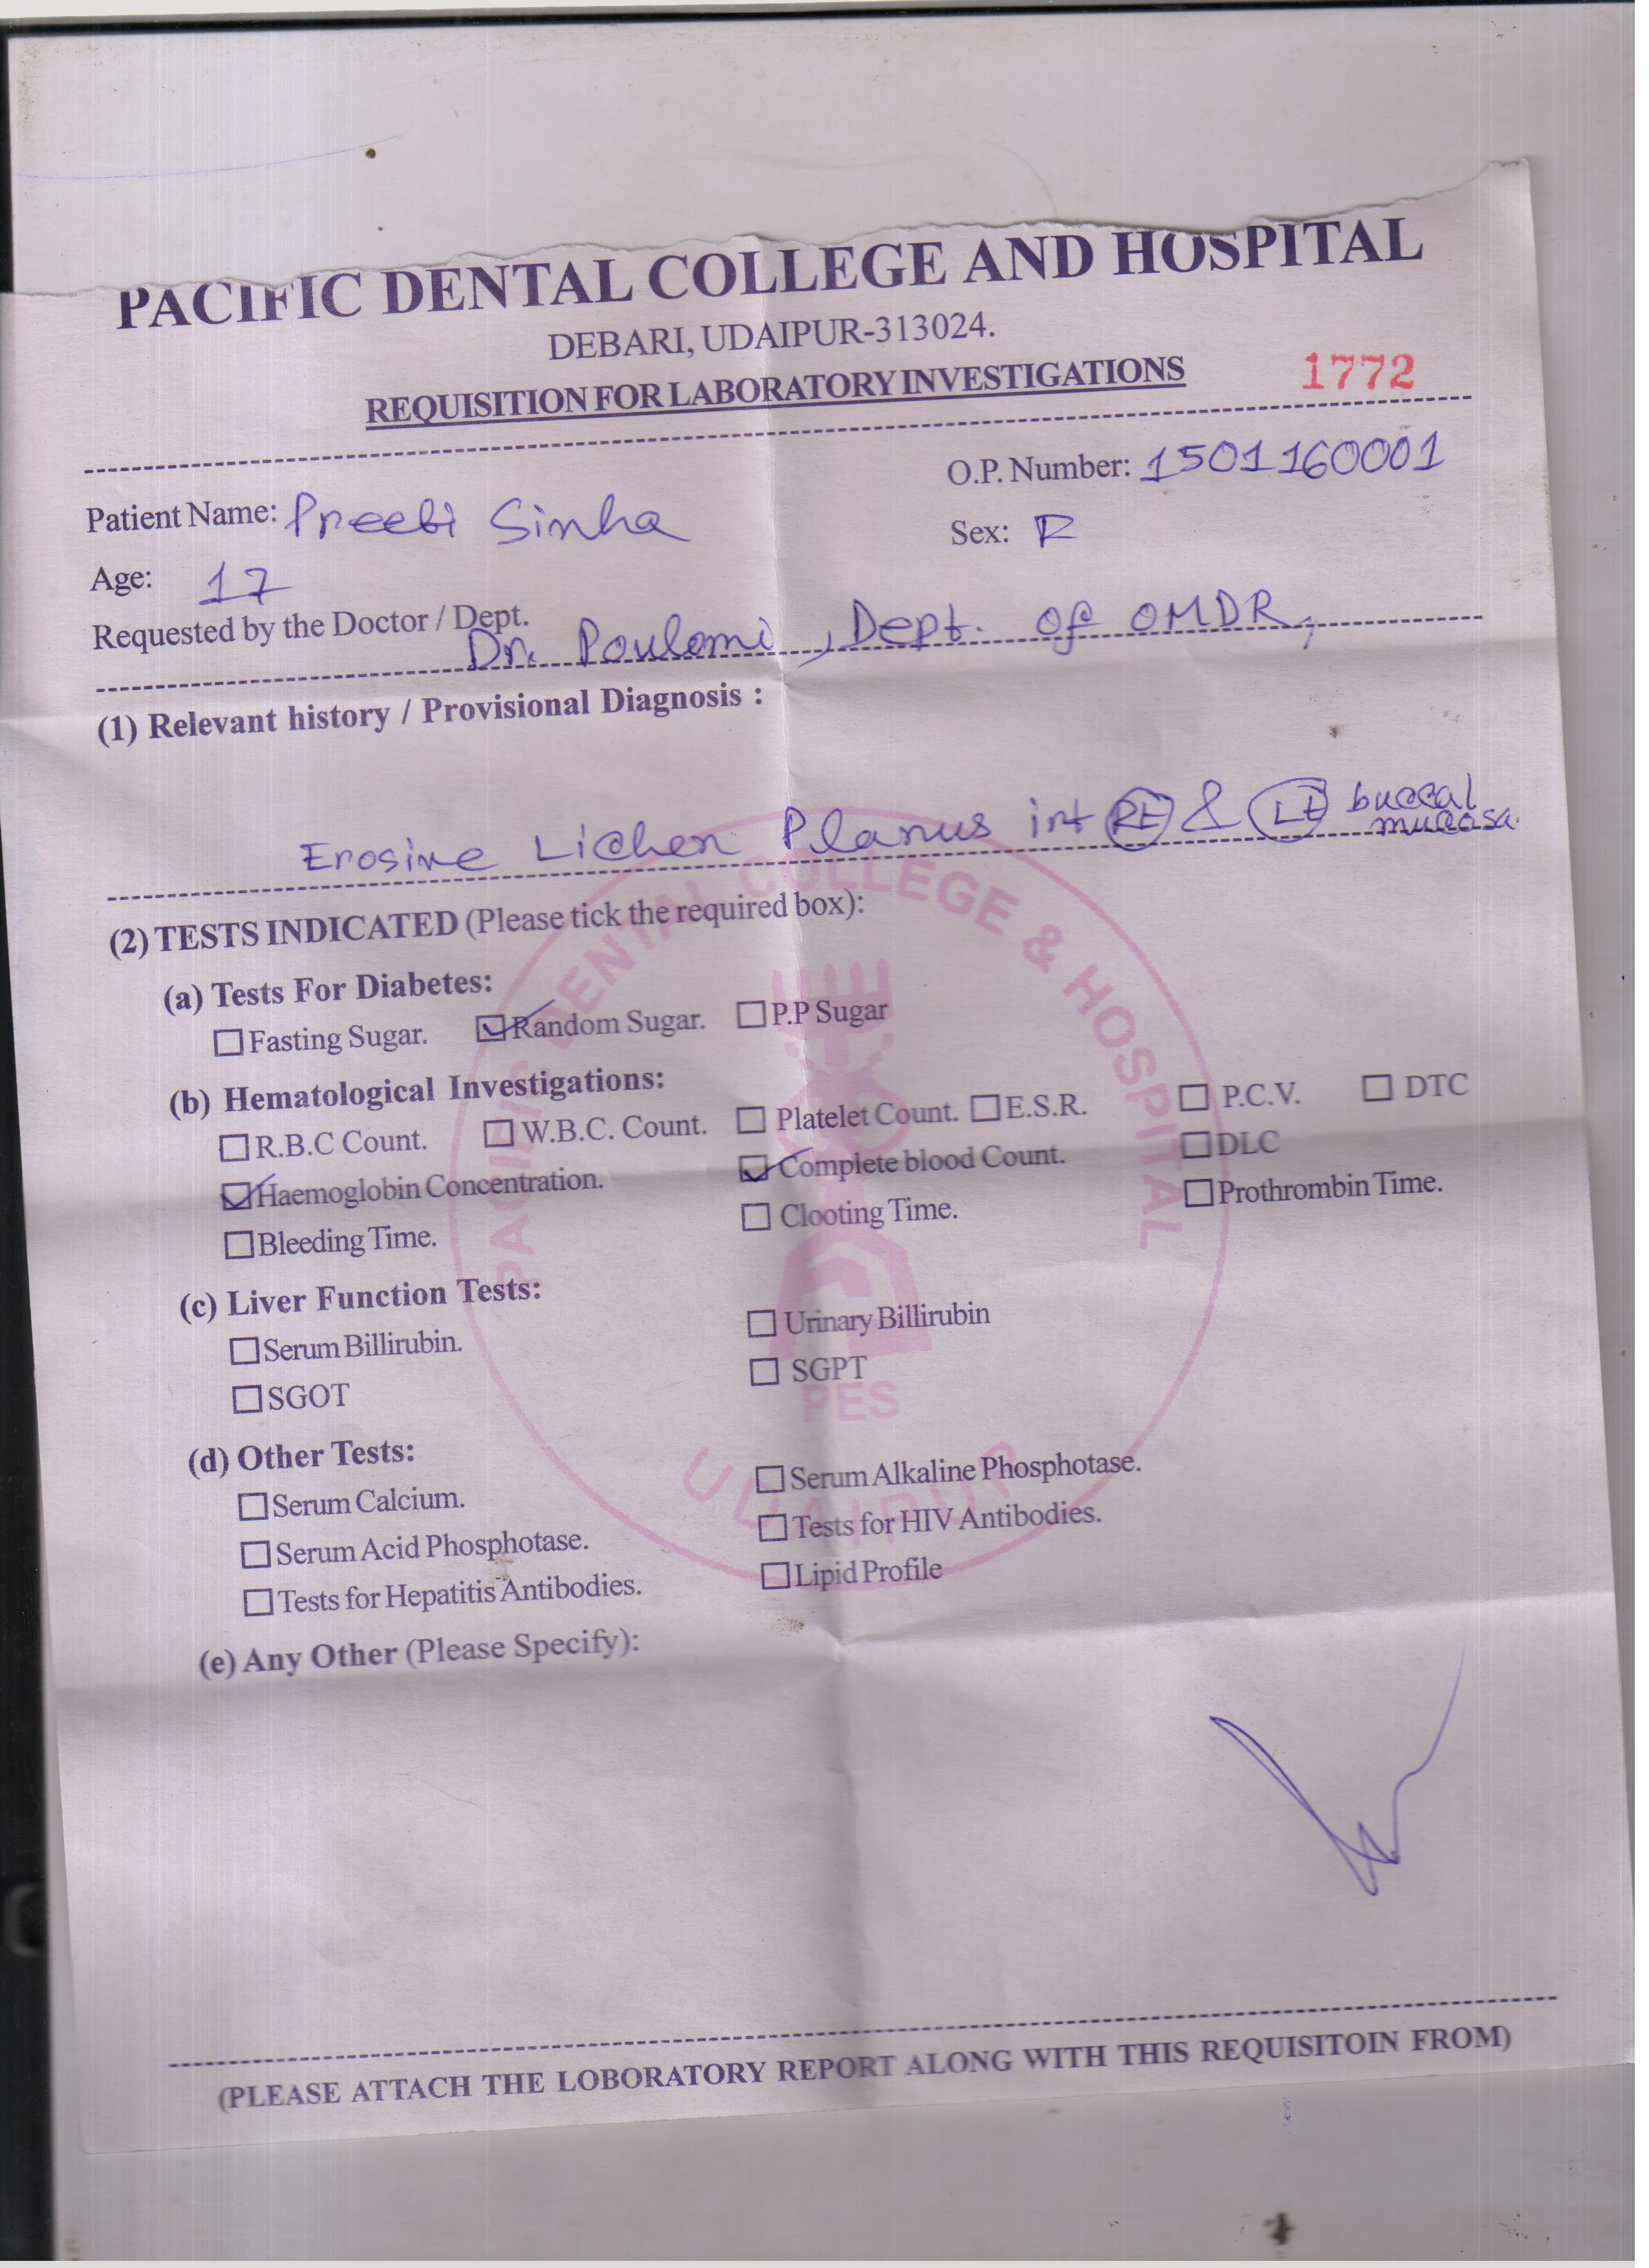 PACIFIC DENTAL COLLEGE AND HOSPITAL
DEBARI, UDAIPUR-313024.
REQUISITION FOR LABORATORY INVESTIGATIONS 1772
O.P. Number: 1501160001
Patient Name: Preeti Sinha
Sex: F
Age: 17
Requested by the Doctor / Dept.
Dr. Poulomi, Dept. of OMDR,
(1) Relevant history / Provisional Diagnosis :
Erosive Lichen Planus irt RE & LE buccal mucosa.
(2) TESTS INDICATED (Please tick the required box):
(a) Tests For Diabetes:
Fasting Sugar. Random Sugar. P.P Sugar
(b) Hematological Investigations:
R.B.C Count. W.B.C. Count. Platelet Count. E.S.R. P.C.V. DTC
Haemoglobin Concentration. Complete blood Count. DLC
Bleeding Time. Clooting Time. Prothrombin Time.
(c) Liver Function Tests:
Serum Billirubin. Urinary Billirubin
SGOT SGPT
(d) Other Tests:
Serum Calcium. Serum Alkaline Phosphotase.
Serum Acid Phosphotase. Tests for HIV Antibodies.
Tests for Hepatitis Antibodies. Lipid Profile
(e) Any Other (Please Specify):
(PLEASE ATTACH THE LOBORATORY REPORT ALONG WITH THIS REQUISITOIN FROM)
PACIFIC DENTAL COLLEGE & HOSPITAL
PES
UDAIPUR